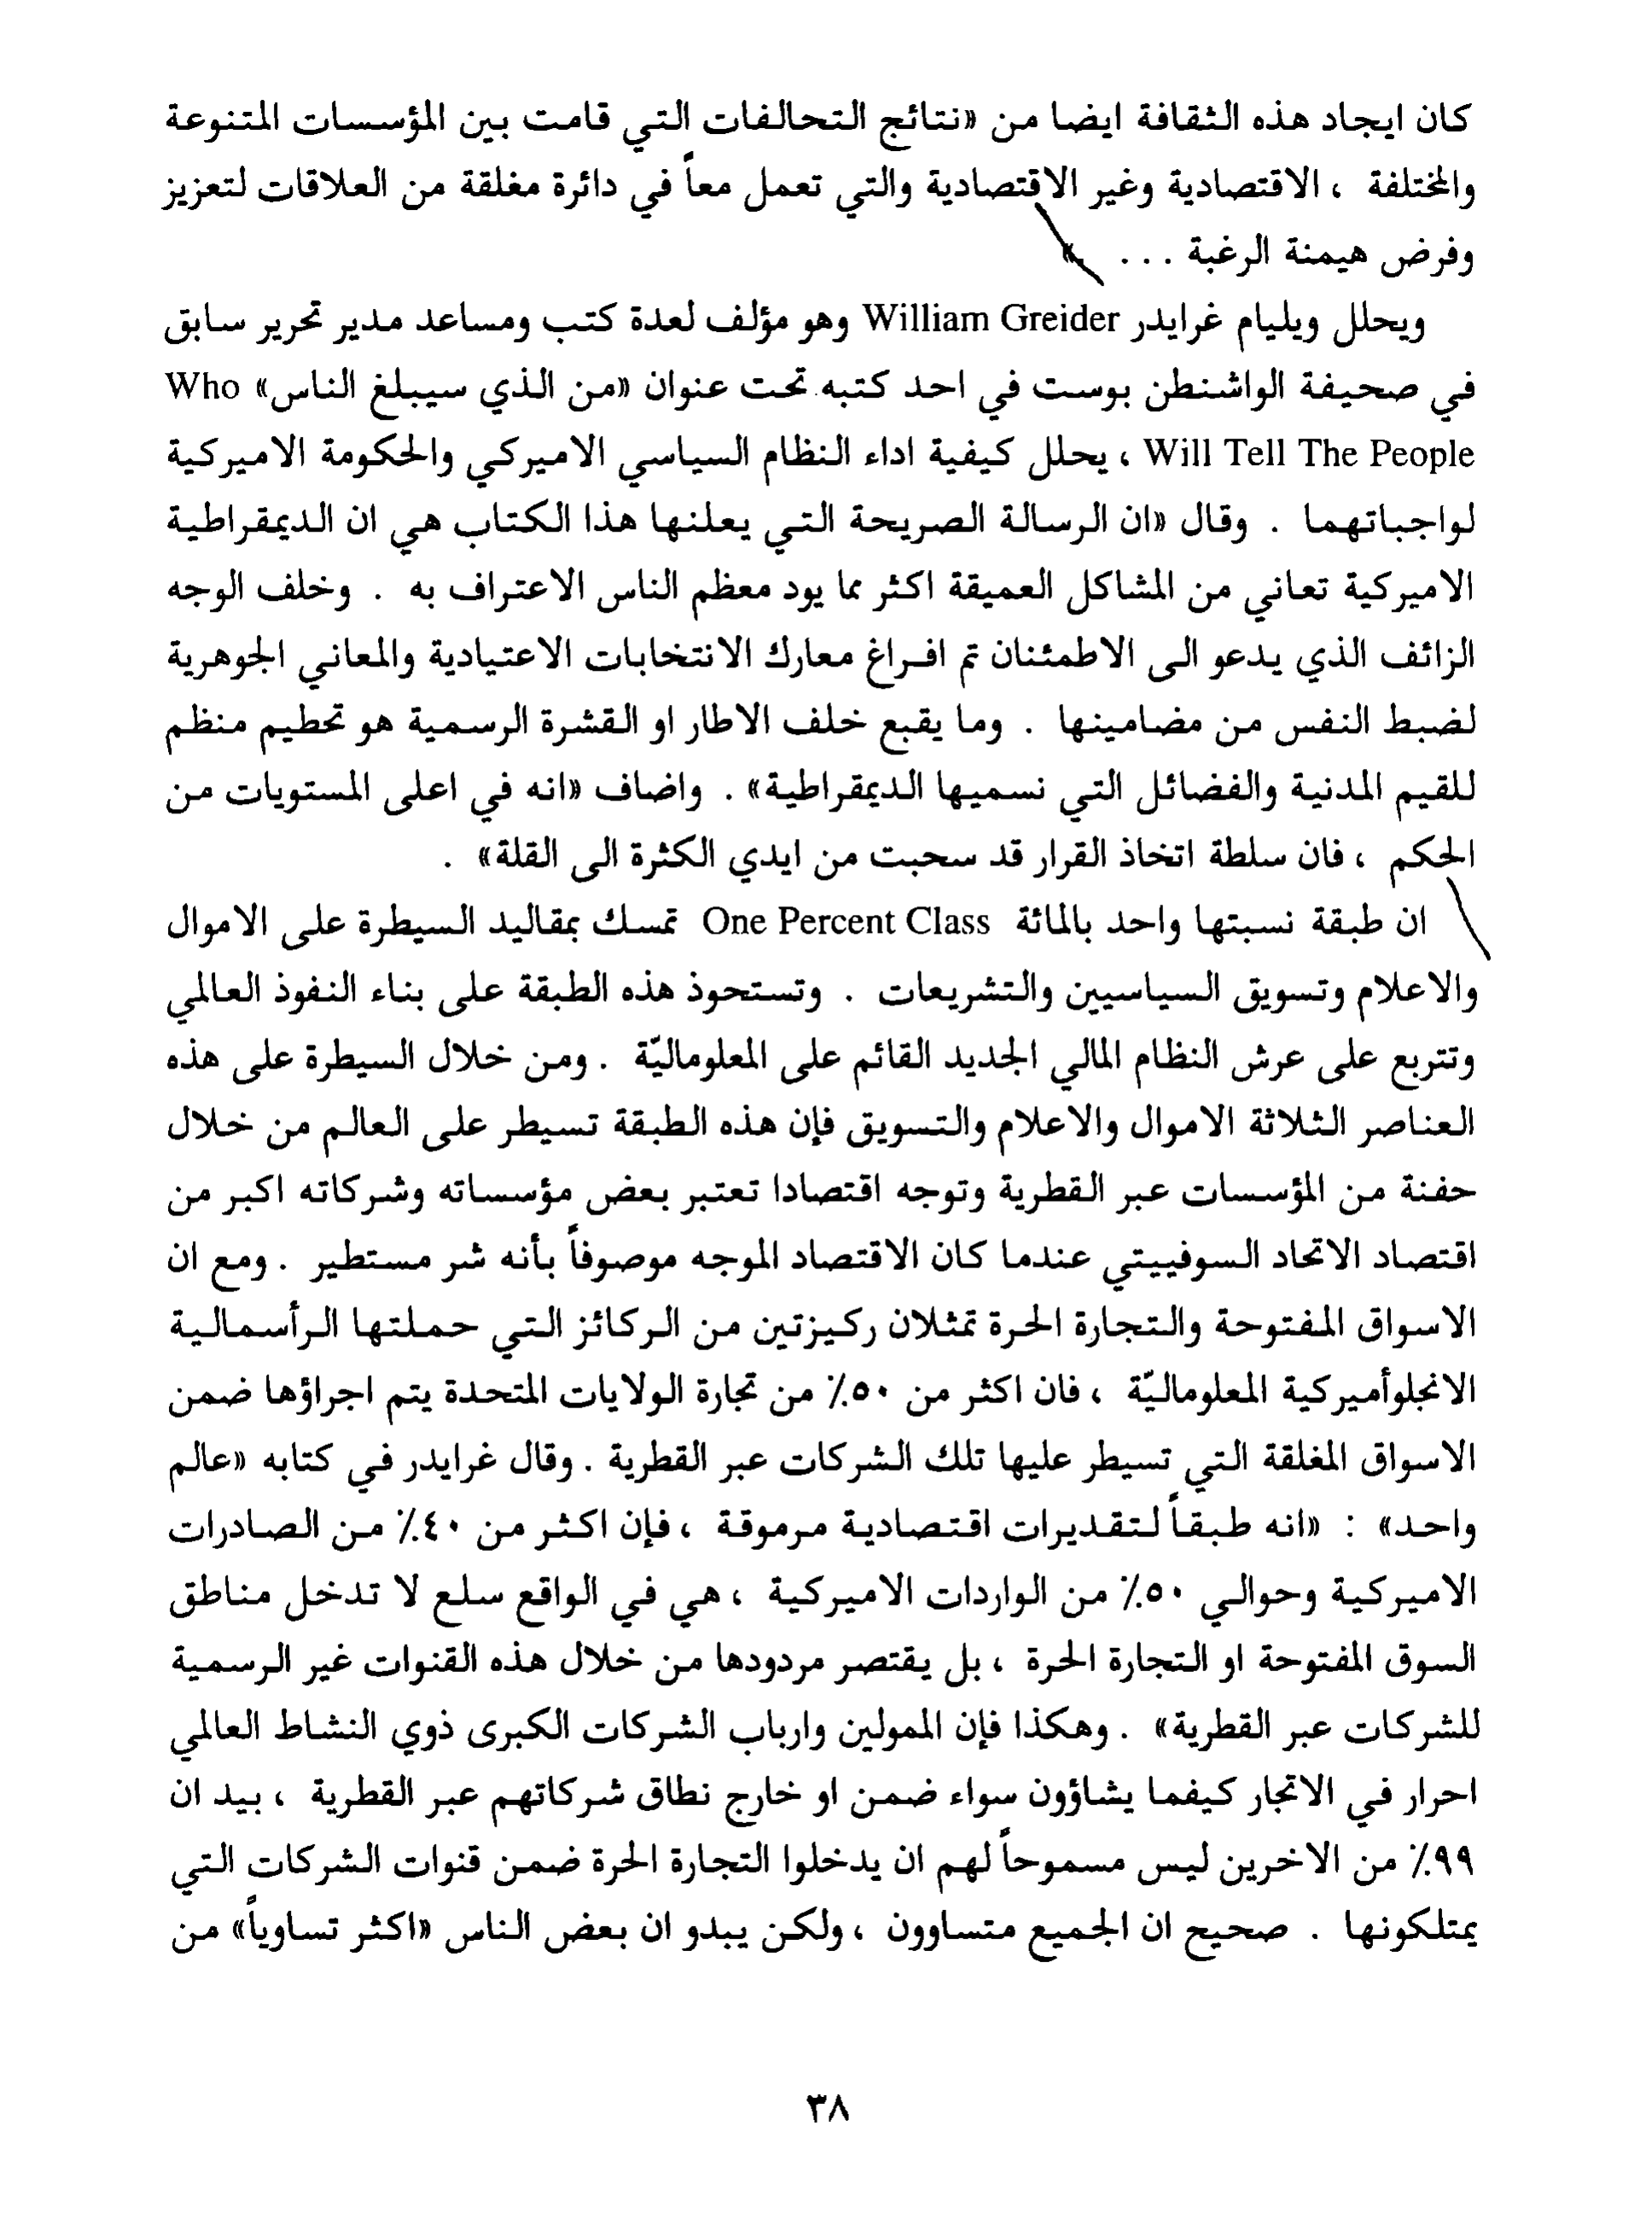 كان ايجاد هذه الثقافة ايضا من «نتائج التحالفات التي قامت بين المؤسسات المتنوعة
والمختلفة ، الاقتصادية وغير الاقتصادية والتي تعمل معاً في دائرة مغلقة من العلاقات لتعزيز
وفرض هيمنة الرغبة . . . »
ويحلل ويليام غرايدر William Greider وهو مؤلف لعدة كتب ومساعد مدير تحرير سابق
في صحيفة الواشنطن بوست في احد كتبه تحت عنوان «من الذي سيبلغ الناس» Who
Will Tell The People ، يحلل كيفية اداء النظام السياسي الاميركي والحكومة الاميركية
لواجباتهما . وقال «ان الرسالة الصريحة التي يعلنها هذا الكتاب هي ان الديمقراطية
الاميركية تعاني من المشاكل العميقة اكثر مما يود معظم الناس الاعتراف به . وخلف الوجه
الزائف الذي يدعو الى الاطمئنان تم افراغ معارك الانتخابات الاعتيادية والمعاني الجوهرية
لضبط النفس من مضامينها . وما يقبع خلف الاطار او القشرة الرسمية هو تحطيم منظم
للقيم المدنية والفضائل التي نسميها الديمقراطية» . واضاف «انه في اعلى المستويات من
الحكم ، فان سلطة اتخاذ القرار قد سحبت من ايدي الكثرة الى القلة» .
ان طبقة نسبتها واحد بالمائة One Percent Class تمسك بمقاليد السيطرة على الاموال
والاعلام وتسويق السياسيين والتشريعات . وتستحوذ هذه الطبقة على بناء النفوذ العالمي
وتتربع على عرش النظام المالي الجديد القائم على المعلوماليّة . ومن خلال السيطرة على هذه
العناصر الثلاثة الاموال والاعلام والتسويق فإن هذه الطبقة تسيطر على العالم من خلال
حفنة من المؤسسات عبر القطرية وتوجه اقتصادا تعتبر بعض مؤسساته وشركاته اكبر من
اقتصاد الاتحاد السوفييتي عندما كان الاقتصاد الموجه موصوفاً بأنه شر مستطير . ومع ان
الاسواق المفتوحة والتجارة الحرة تمثلان ركيزتين من الركائز التي حملتها الرأسمالية
الانجلوأميركية المعلوماليّة ، فان اكثر من ٥٠٪ من تجارة الولايات المتحدة يتم اجراؤها ضمن
الاسواق المغلقة التي تسيطر عليها تلك الشركات عبر القطرية . وقال غرايدر في كتابه «عالم
واحد» : «انه طبقاً لتقديرات اقتصادية مرموقة ، فإن اكثر من ٤٠٪ من الصادرات
الاميركية وحوالي ٥٠٪ من الواردات الاميركية ، هي في الواقع سلع لا تدخل مناطق
السوق المفتوحة او التجارة الحرة ، بل يقتصر مردودها من خلال هذه القنوات غير الرسمية
للشركات عبر القطرية» . وهكذا فإن الممولين وارباب الشركات الكبرى ذوي النشاط العالمي
احرار في الاتجار كيفما يشاؤون سواء ضمن او خارج نطاق شركاتهم عبر القطرية ، بيد ان
٩٩٪ من الاخرين ليس مسموحاً لهم ان يدخلوا التجارة الحرة ضمن قنوات الشركات التي
يمتلكونها . صحيح ان الجميع متساوون ، ولكن يبدو ان بعض الناس «اكثر تساوياً» من
٣٨